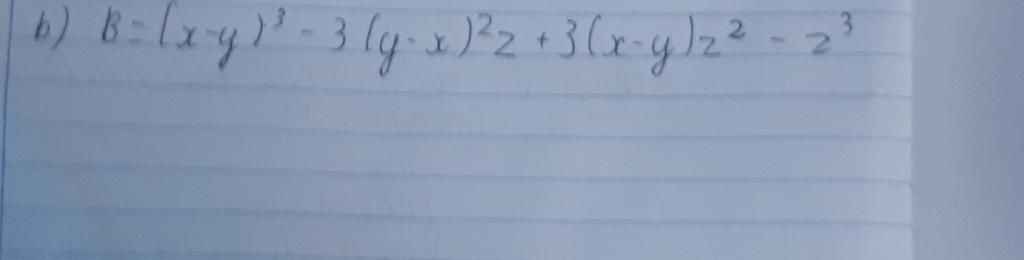 b) B = (x-y)³ - 3(y-x)²z + 3(x-y)z² - z³